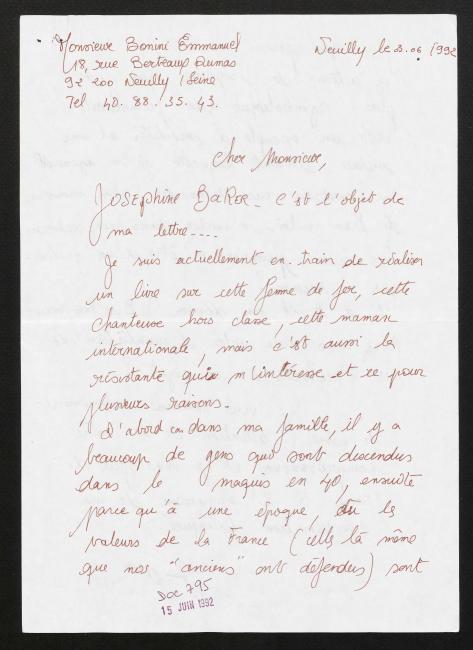 Monsieur Bonini Emmanuel
18, rue Berteaux Dumas
92 200 Neuilly / Seine
Tel 40. 88. 35. 43.
Neuilly le 3.06 1992
Cher Monsieur,
JOSEPHINE BaKer_ C'est l'objet de
ma lettre....
Je suis actuellement en train de réaliser
un livre sur cette femme de fer, cette
chanteuse hors classe, cette maman
internationale, mais c'est aussi la
résistante qui m'intéresse et ce pour
plusieurs raisons.
D'abord dans ma famille, il y a
beaucoup de gens qui sont descendus
dans le maquis en 40, ensuite
parce qu'à une époque, où les
valeurs de la France (celles là même
que nos "anciens" ont défendues) sont
Doc 795
15 JUIN 1992